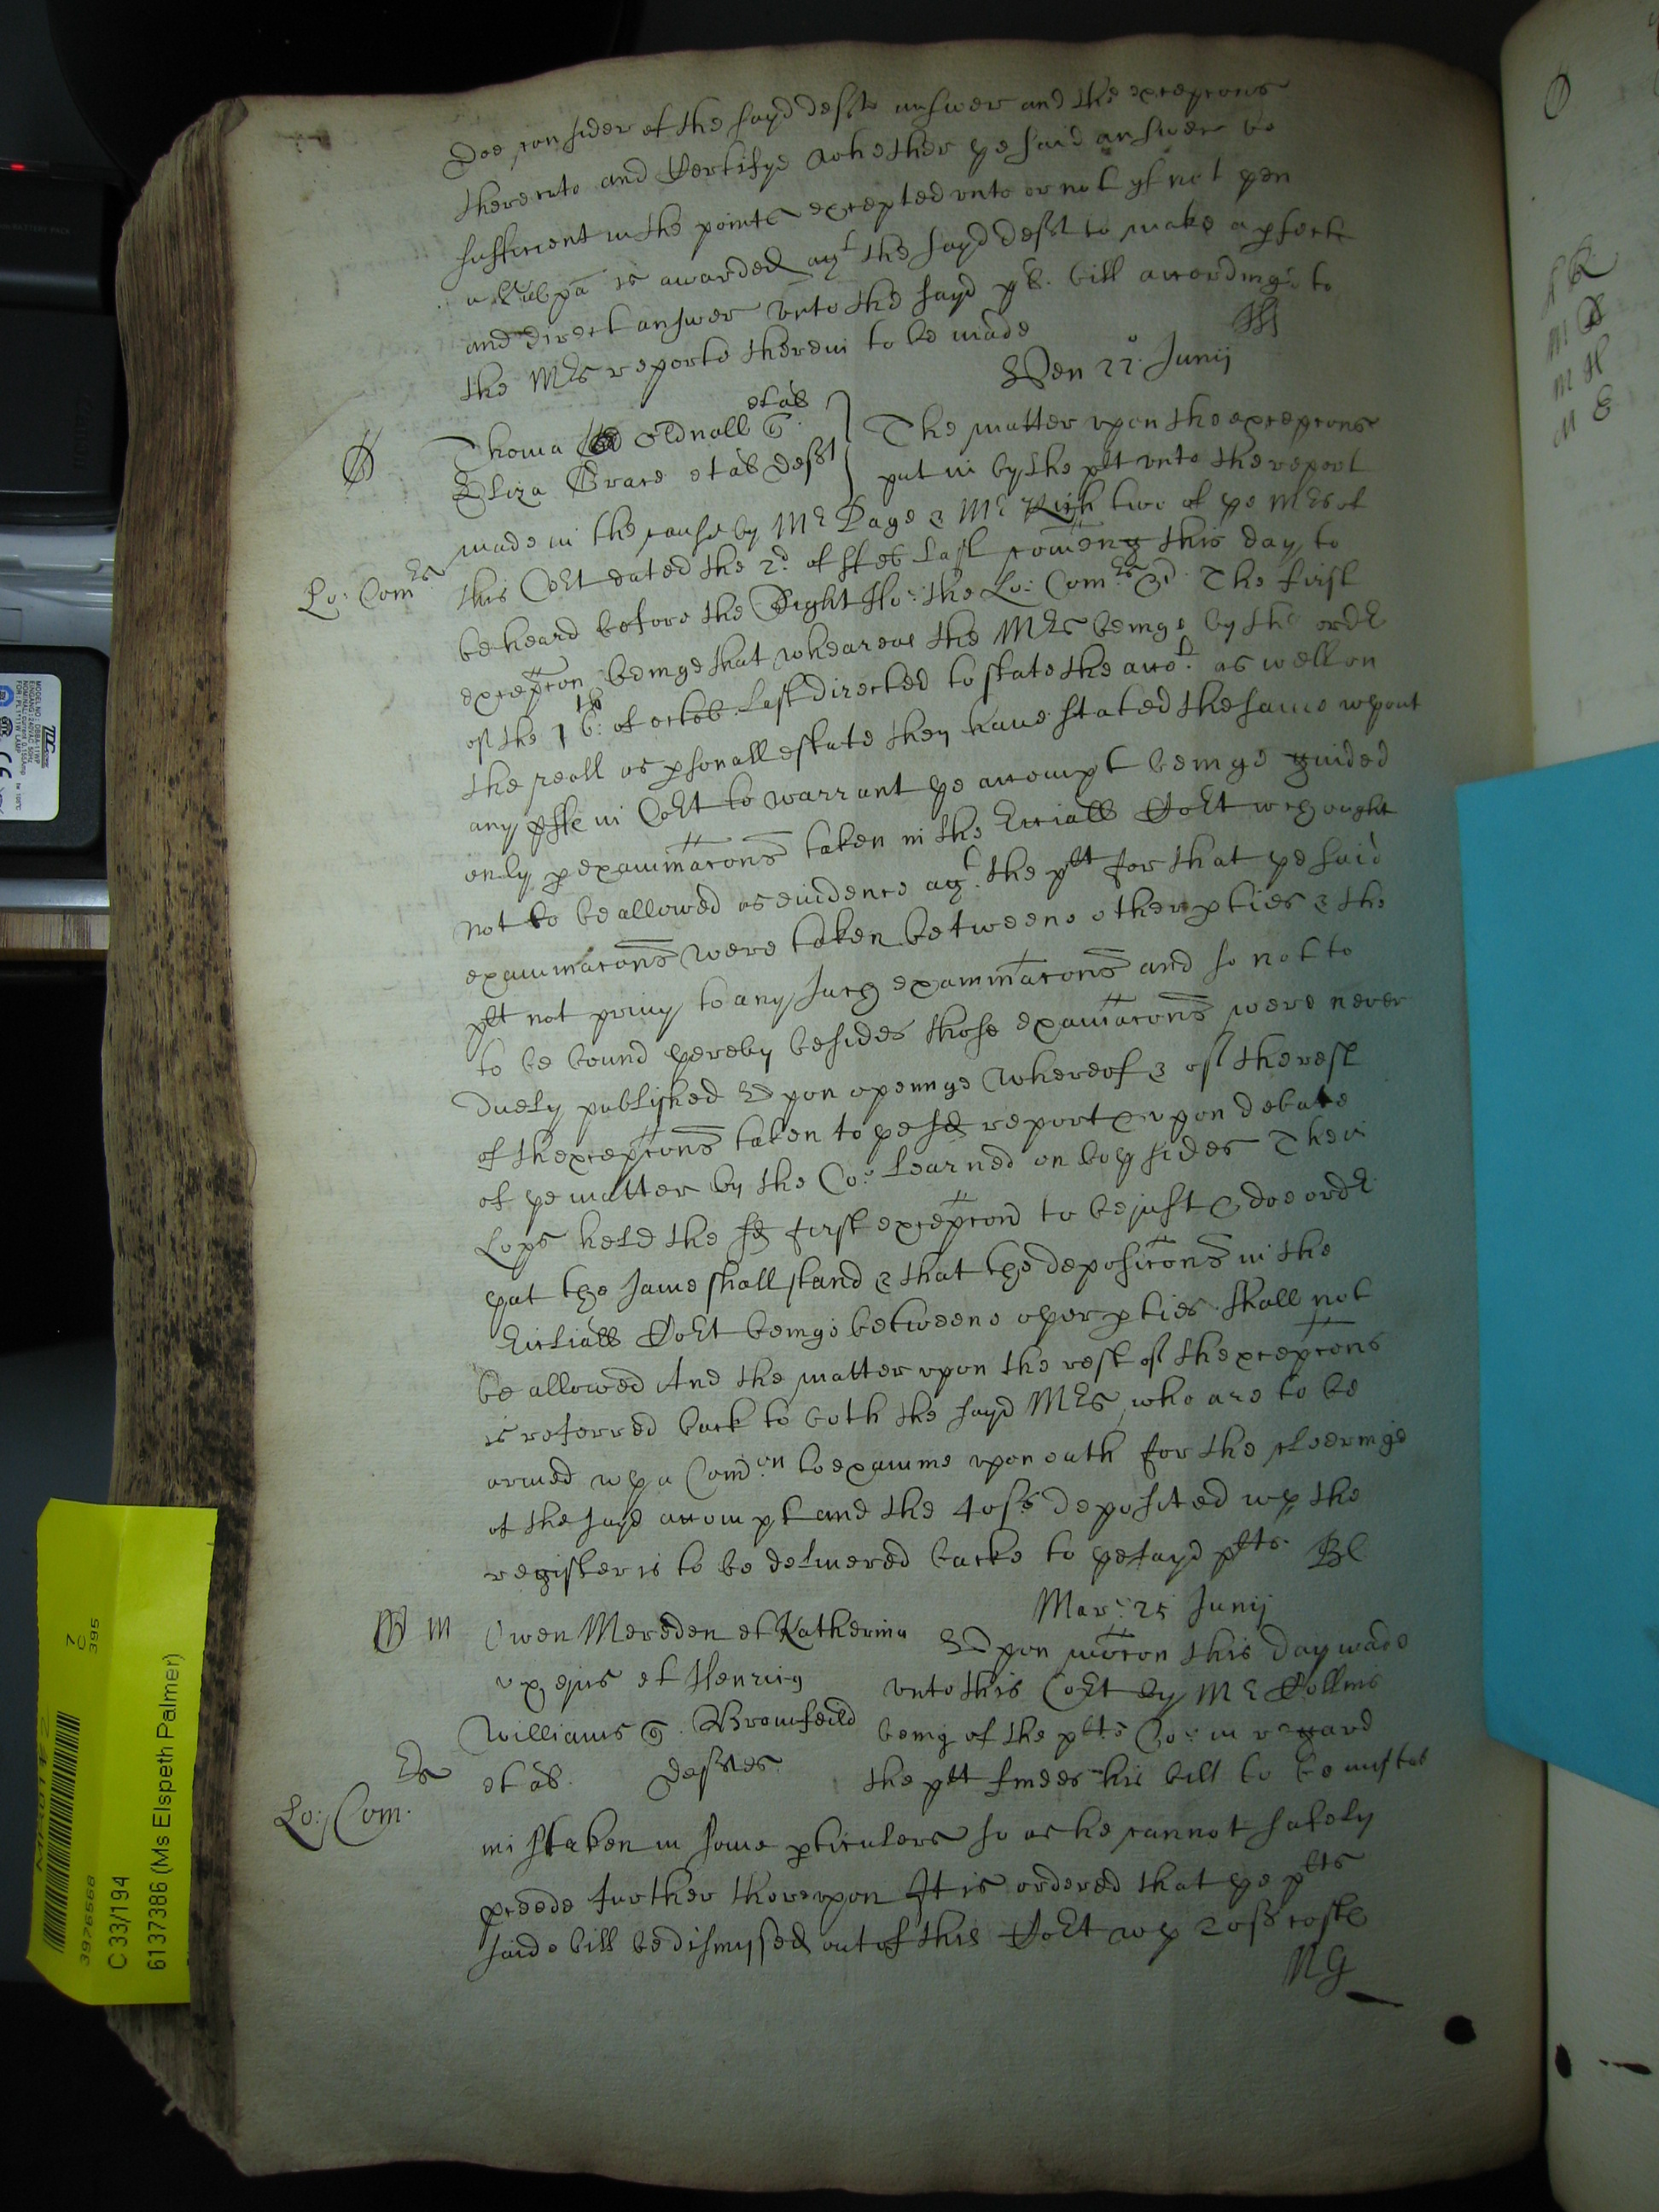 Doe consider of the sayd defts answer and the excepcons
therevnto and Certifye whether ye said answer be
sufficient in the pointes excepted vnto or not yf not yen
a Subpa is awarded agt the sayd deft to make a pfecte
and direct answer vnto the sayd pls. bill accordinge to
the Mrs reporte therein to be made
Ven 22o Junij
et als
Thoma Oldnall
Eliza Grace et als Deft
The matter vpon the excepcons
put in by the plt vnto the report
made in the cause by Mr Page & Mr Rich two of ye Mrs of
Lo: Comrs
this Cort dated the 2d of Feb last comeng this day to
be heard before the Right Ho: the Lo: Comrs &d. The first
excepcon beinge that wheareas the Mrs beinge by the ordr
of the 16th: of octob. last directed to state the acct. as well on
the reall as psonall estate they haue stated the same wyout
any pffe in Cort to warrant ye accompt beinge guided
only p examinacons taken in the Ecciall Cort wch ought
not to be allowed as euidence agt. the plt for that ye said
examinacons were taken betweene other pties & the
plt not privy to any such examinacons and so not to
to be bound yereby besides those examacons were never
duely published Vpon openinge whereof & of the rest
of thexcepcons taken to ye sd report & vpon debate
of ye matter by the Co: learned on boy sides Their
Lops held the sd first excepcon to be just & doe ordr
yat the same shall stand & that the deposicons in the
Eccliall Cort beinge betweene oyer pties shall not
be allowed And the matter vpon the rest of thexcepcons
is referred back to both the sayd Mrs who are to be
armed wy a Comon to examine vpon oath for the cleeringe
of the sayd accompt and the 40s deposited wy the
register is to be deliuered backe to ye sayd plts. Bl
Mar: 25 Junij
m Owen Mereden et Katherina
vx ejus et Henricus
Williams Bromfeild
et als. Deftes.
Vpon mocon this day made
vnto this Cort by Mr Collins
being of the plts Co: in regard
the plt findes his bill to be
Lo: Comrs
mistaken in some pticulers so as he cannot safely
pceede further therevpon It is ordered that ye plts
saide bill be dismyssed out of this Cort wy 20s coste
NG
C 33/194
6137386 (Ms Elspeth Palmer)
3976568
7
C
395